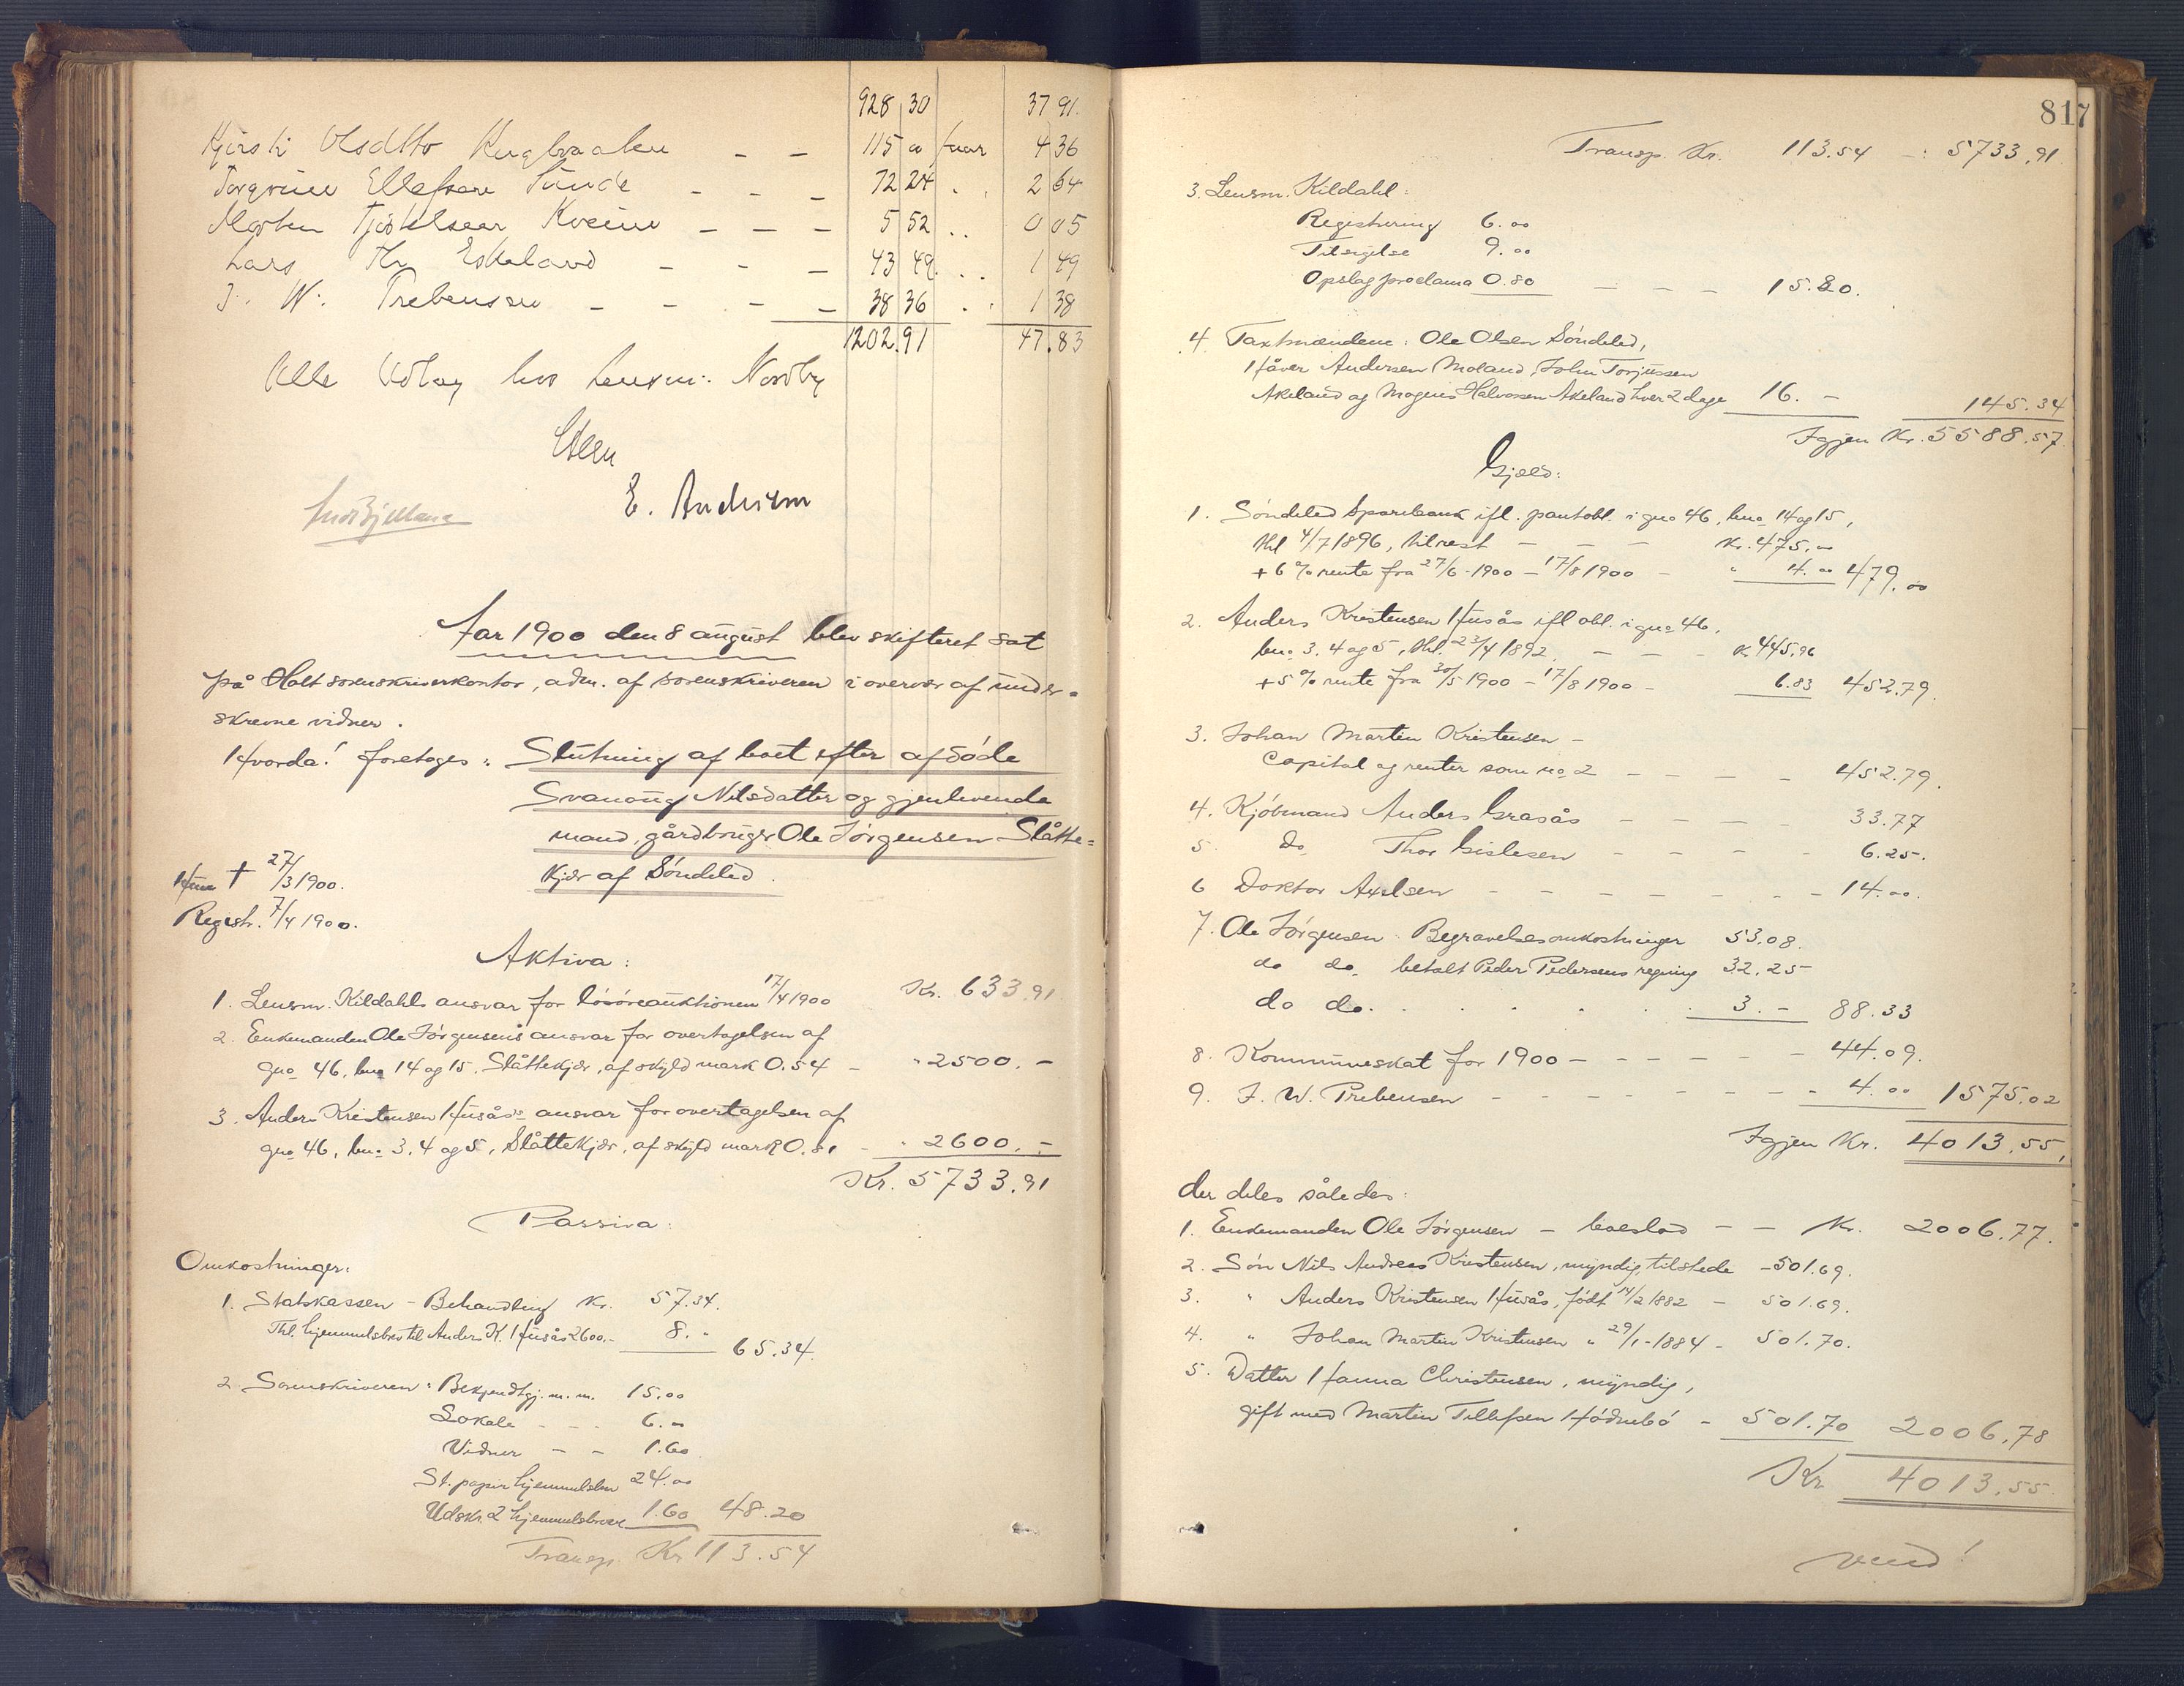 928 30 37 91.
Kjirsti Olsdtr Kuglvaalen - - 115 a faar 4 36
Torgrim Ellefsen Sunde - - - 72 24 . . 2 64
Morten Tjøstelsen Kveim - - - 5 52 . . 0 05
Lars Kr. Eskeland - - - 43 49 . . 1 49
J. W. Prebensen - - - - 38 36 . . 1 38
1202.91 47.83
Alle Udlæg hos Lensm: Nordby
Olsen
E. Andersen
Aar 1900 den 8 august blev skifteret sat
på Holt sorenskriverkontor, adm. af sorenskriveren i overvær af under=
skrevne vidner.
Hvorda! foretoges: Slutning af boet efter afdøde
Svanaug Nilsdatter og gjenlevende
mand, gårdbruger Ole Jørgensen Slåtte=
kjær af Søndeled.
Hun † 27/3 1900.
Registr. 7/4 1900.
Aktiva:
1. Lensm. Kildahls ansvar for løsøreauktionen 17/4 1900 Kr. 633.91
2. Enkemanden Ole Jørgensens ansvar for overtagelsen af
gno 46, bno 14 og 15, Slåttekjær, af skyld mark 0.54 - " 2500. -
3. Anders Kristensen Husås's ansvar for overtagelsen af
gno 46, bno 3, 4 og 5, Slåttekjær, af skyld mark 0.81 - " 2600. -
Kr. 5733.91
Passiva:
Omkostninger:
1. Statskassen - Behandling Kr. 57.34.
Thl. hjemmelsbrev til Anders K. Husås 2600.- 8. " 65.34.
2. Sorenskriveren: Bekjendtgj. m. m. 15.00
Lokale - - - 6.00
Vidner - - 1.60
St. papir hjemmelsbr 24.00
Udskr. 2 hjemmelsbreve 1.60 48.20
Transp. Kr 113.54
817
Transp. Kr. 113.54 -: 5733.91
3. Lensm. Kildahl:
Registrering 6.00
Tilsigelse 9.00
Opslag proclama 0.80 - - - 15.80.
4 Taxtmændene: Ole Olsen Søndeled,
Håver Andersen Moland, John Torjussen
Akeland og Mogens Halvorsen Akeland hver 2 dage 16. - 145.34
Igjen Kr. 5588.57
Gjæld:
1. Søndeled Sparebank ifl. pantobl. i gno 46, bno 14 og 15,
thl 4/7 1896, tilrest - - - Kr. 475.00
+ 6 % rente fra 27/6-1900 - 17/8 1900 - " 4.00 479.00
2. Anders Kristensen Husås ifl obl. i gno 46,
bno 3, 4 og 5, thl. 23/4 1892 - - - Kr 445.96
+ 5 % rente fra 30/5 1900 - 17/8 1900 - 6.83 452.79.
3. Johan Martin Kristensen -
Capital og renter som no 2 - - - - 452.79.
4. Kjøbmand Anders Grasås - - - - 33.77
5. do Thor Gislesen - - - - 6.25.
6 Doktor Axelsen - - - - - - - 14.00.
7. Ole Jørgensen Begravelsesomkostninger 53.08.
do do. betalt Peder Pedersens regning 32.25
do do. . . . . . 3. - 88.33
8. Kommuneskat for 1900 - - - - - - 44.09.
9. J. W. Prebensen - - - - - - - 4.00 1575.02
Igjen Kr. 4013.55,
der deles således:
1. Enkemanden Ole Jørgensen - boeslod - - Kr. 2006.77.
2. Søn Nils Andreas Kristensen, myndig, tilstede - 501.69.
3. " Anders Kristensen Husås, født 14/2 1882 - 501.69.
4. " Johan Martin Kristensen " 29/1-1884 - 501.70.
5. Datter Hanna Christensen, myndig,
gift med Martin Tellefsen Hødnebø - 501.70 2006.78
Kr 4013.55
vend!